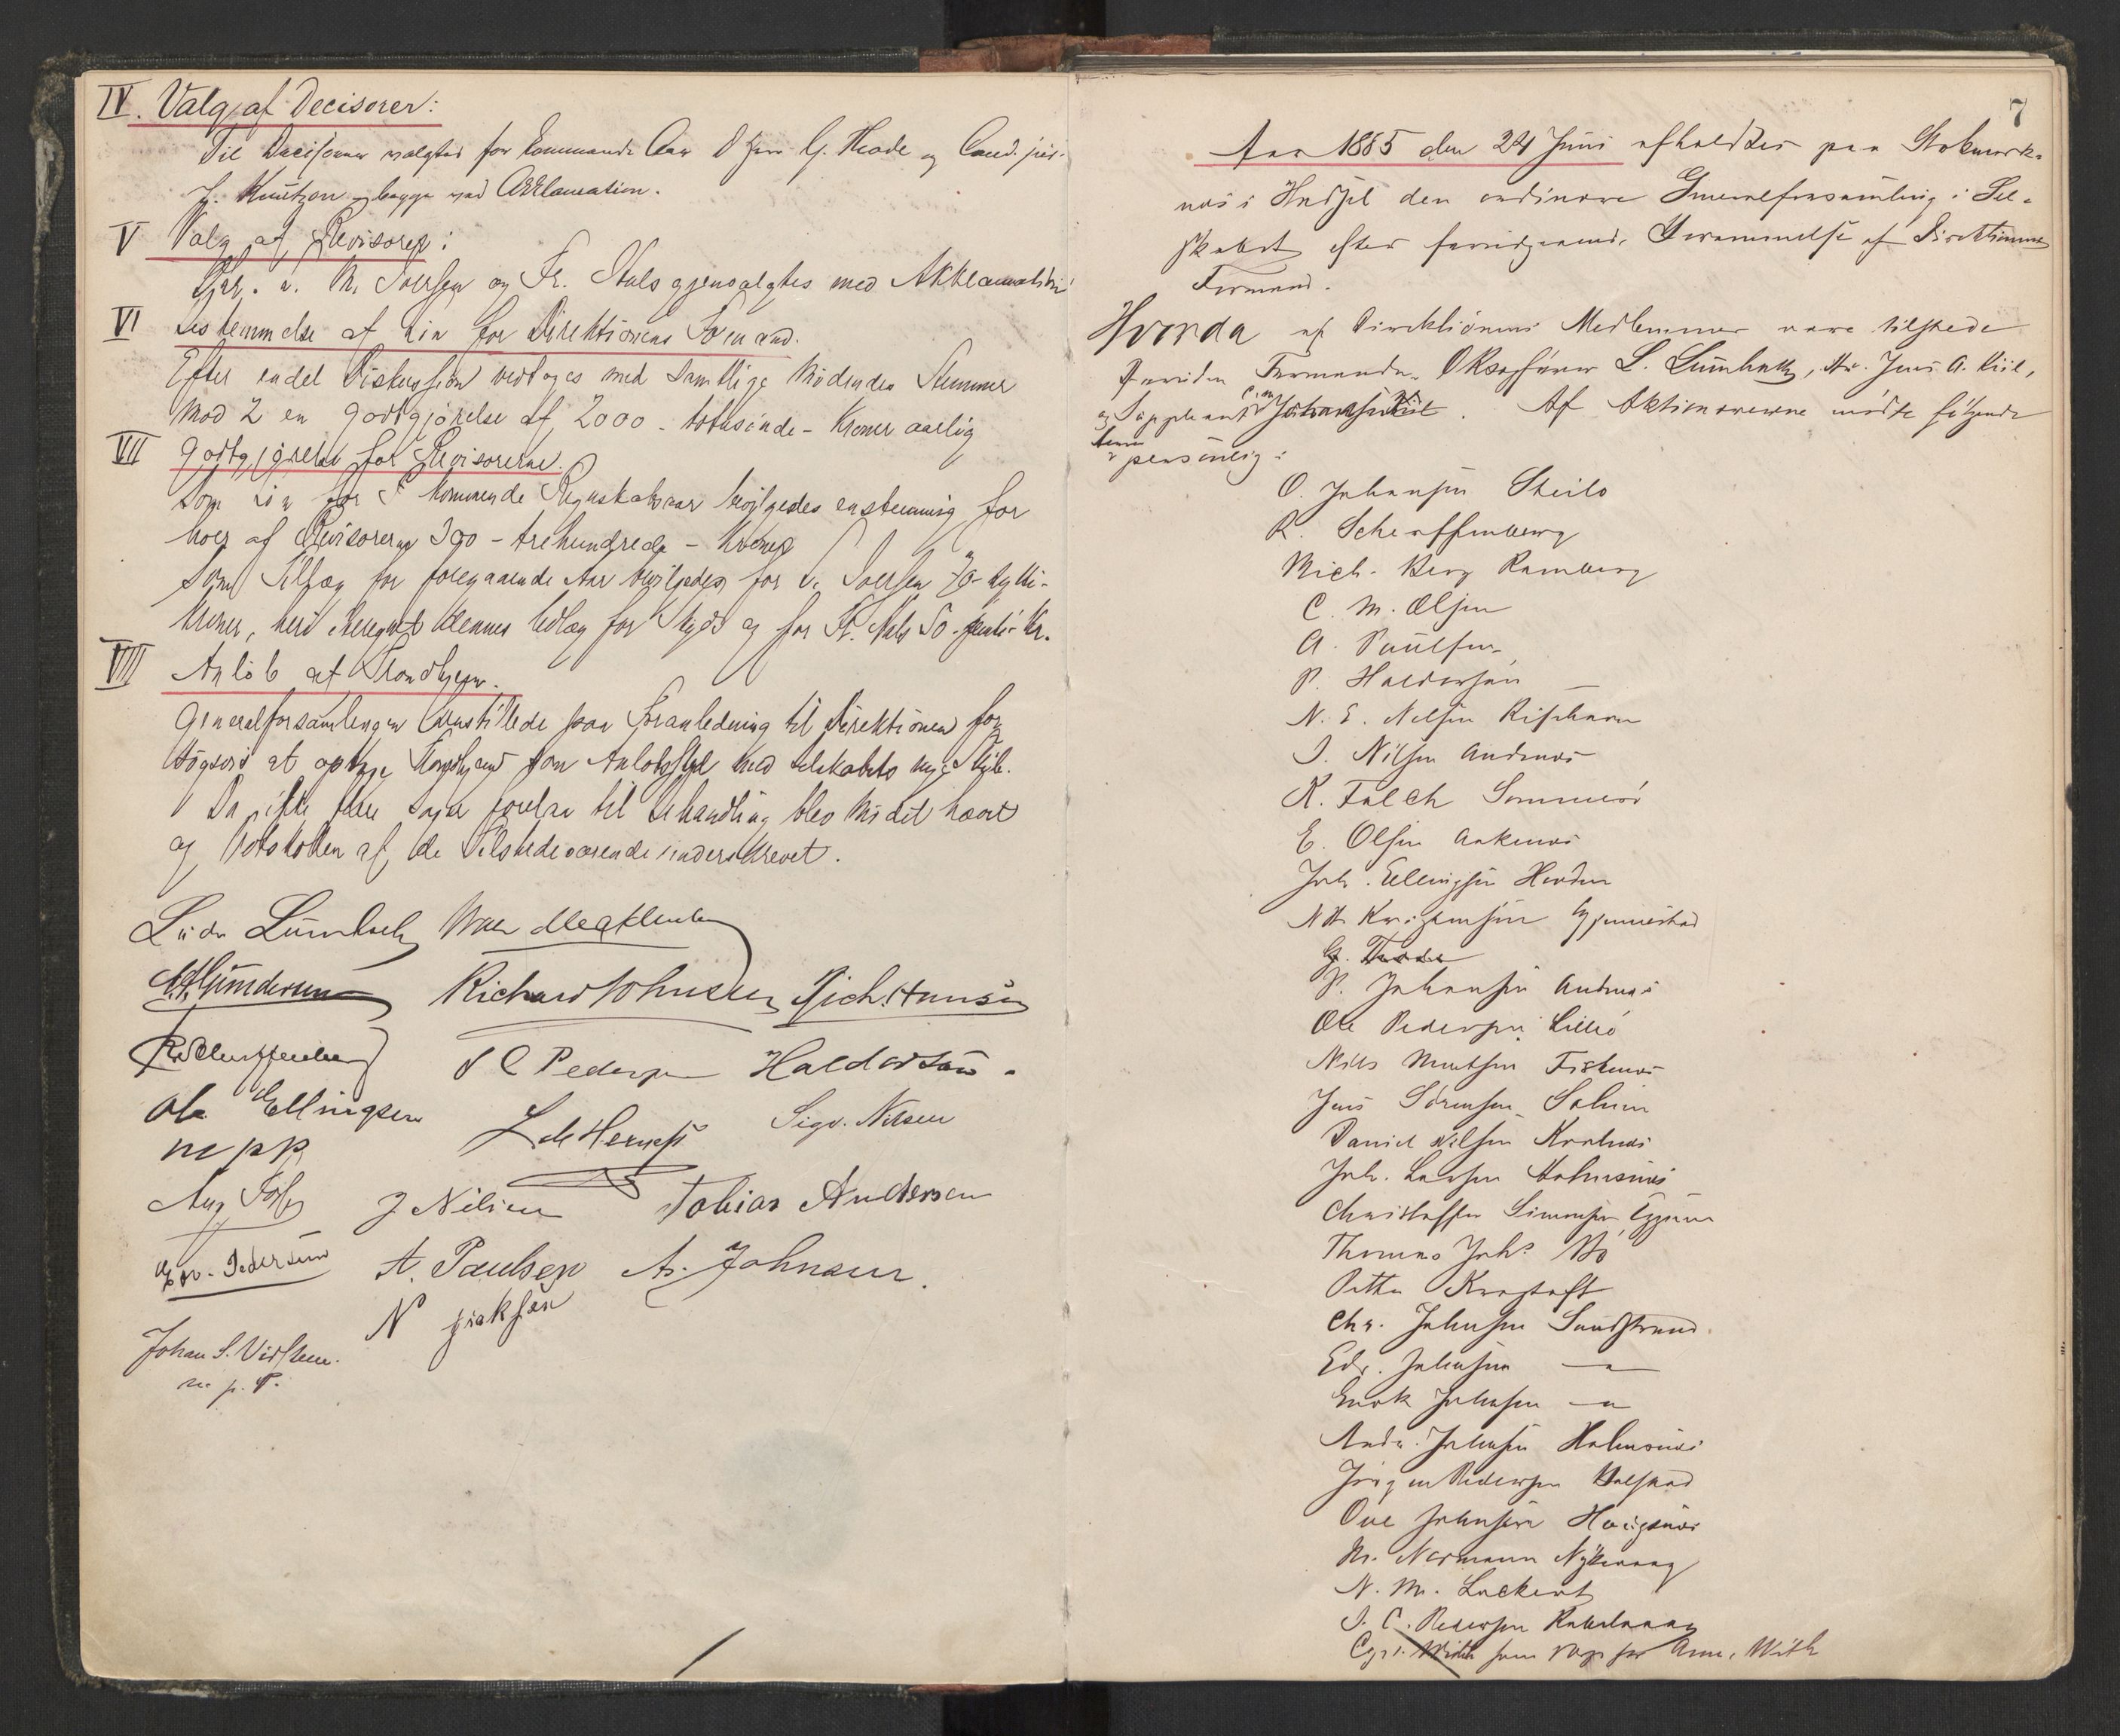 IV. Valg af Decisorer:
Til Decisorer valgtes for kommende Aar d'Hrr. G. Thode og Cand. jur.
J. Knutzon begge ved Akklamation.
V Valg af Revisorer:
M. Iversen og Fr. Hals gjenvalgtes med Akklamation
VI Bestemmelse af Løn for Direktionens Formand.
Efter endel Diskussion vedtoges med samtlige Mødendes Stemmer
mod 2 en Godtgjørelse af 2000 - totusinde - Kroner aarlig
VII Godtgjørelse for Revisorerne.
Som Løn for kommende Regnskabsaar bevilgedes enstemmig for
hver af Revisorerne 300 - trehundrede - Kroner
Som Tillæg for foregaaende Aar bevilgedes for Iversen 70 - sytti -
Kroner, heri beregnet dennes Udlæg for Skyds og for Fr. Hals 50 - femti - Kr.
VIII Anløb af Trondhjem.
Generalforsamlingen henstillede paa Foranledning til Direktionen
at optage Trondhjem som Anløbssted med Selskabets nye Skib.
Da ikke flere Sager forelaa til Behandling blev Mødet hævet
og Protokollen af de Tilstedeværende underskrevet.
Richard Johnsen Rich. Hansen
R. Scharffenberg P C Pedersen Haldorsen.
Ole Ellingsen Sigv. Nilsen
m p p
J Nilsen Tobias Andersen
Edv. Pedersen A. Paulsen A. Johnsen.
N Isaksen
Johan S.
m. p. P.
7
Aar 1885 den 24 Juni afholdtes paa Stokmark-
næs i Hadsel den ordinære Generalforsamling i Sel-
skabet efter foregaaende Berammelse af Direktionens
Formand.
Hvorda af Direktionens Medlemmer vare tilstede
foruden Formanden, Oksefører L. Lumholtz, Hr. Jens A. Kiil,
og Suppleant . Af Aktionærerne mødte følgende
personlig:
O. Johansen Steilo
R. Scharffenberg
Mich. Berg Ramberg
C. M. Olsen
A. Paulsen
P. Haldorsen
N. E. Nelsen Risøhavn
I. Nilsen Andenæs
K. Falch Sommerø
E. Olsen Aaknæs
Joh. Ellingsen Hovden
G. Thode
P. Johansen Andenæs
Ole Pedersen Lillø
Nils Mentzen Fiskenæs
Jens Sørensen
Daniel Nilsen
Joh. Larsen Holmsnæs
Christoffer Simonsen
Thomas Johs. Bø
Petter Krogtoft
Chr. Johnsen Sandstrand.
Edv. Johnsen — " —
Enok Johnsen — " —
Andr. Johnsen Holmsnæs
Jørgen Pedersen
Ove Johnsen Haugsnæs
M. Normann Nykvaag
N. M. Lockert
J. C. Pedersen
With som for Anna With